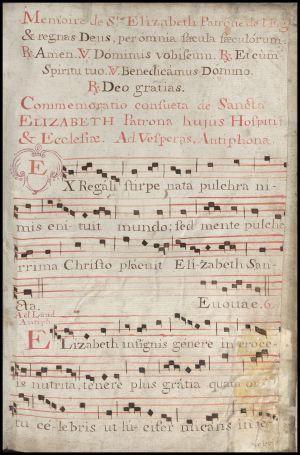 Memoire de Ste Elizabeth Patrone de l'Eg
& regnas Deus, per omnia sæcula sæculorum.
℟. Amen. ℣. Dominus vobiscum. ℟. Et cum
Spiritu tuo. ℣. Benedicamus Domino.
℟. Deo gratias.
Commemoratio consueta de Sancta
ELIZABETH Patrona hujus Hospitii
& Ecclesiæ. Ad Vesperas, Antiphona.
EX Regali stirpe nata pulchra ni-
mis enituit mundo; sed mente pulche
rrima Christo placuit Eli-zabeth San-
cta. Euouae. 6.
Ad Laud
Antip.
ELizabeth insignis genere in
is nutrita, tenere plus gratia quam
tu celebris ut